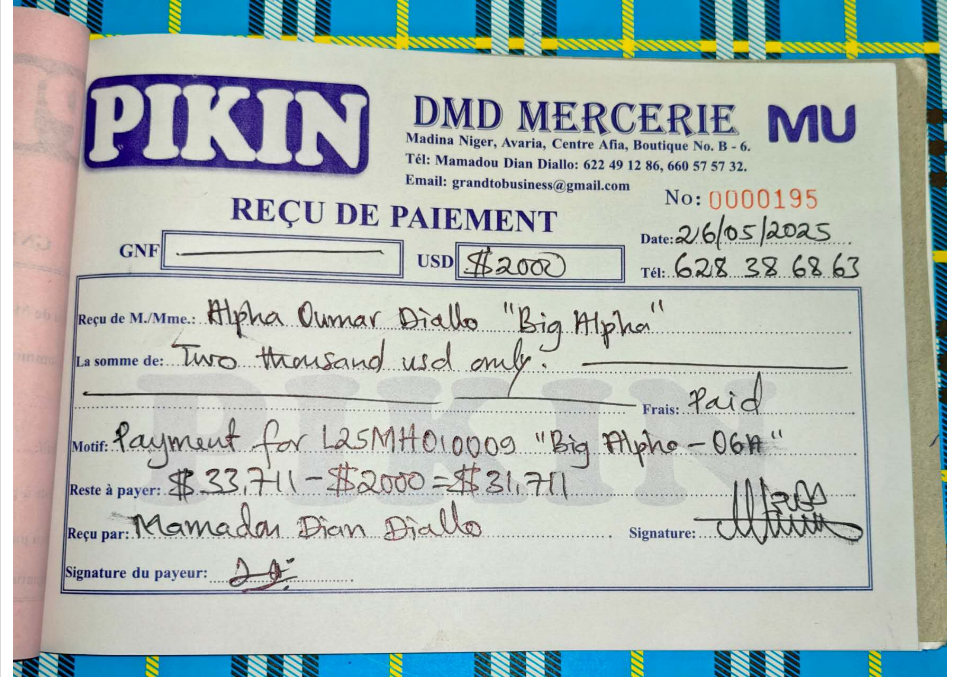 PIKIN
DMD MERCERIE
MU
Madina Niger, Avaria, Centre Afia, Boutique No. B - 6.
Tél: Mamadou Dian Diallo: 622 49 12 86, 660 57 57 32.
Email: grandtobusiness@gmail.com
No: 0000195
REÇU DE PAIEMENT
Date: 26/05/2025
GNF
USD $2000
Tél: 628 38 68 63
Reçu de M./Mme.: Alpha Oumar Diallo "Big Alpha"
La somme de: Two thousand usd only.
Frais: Paid
Motif: Payment for L25MH010009 "Big Alpha - 06A"
Reste à payer: $33,711 - $2000 = $31,711
Reçu par: Mamadou Dian Diallo
Signature:
Signature du payeur:
PIKIN